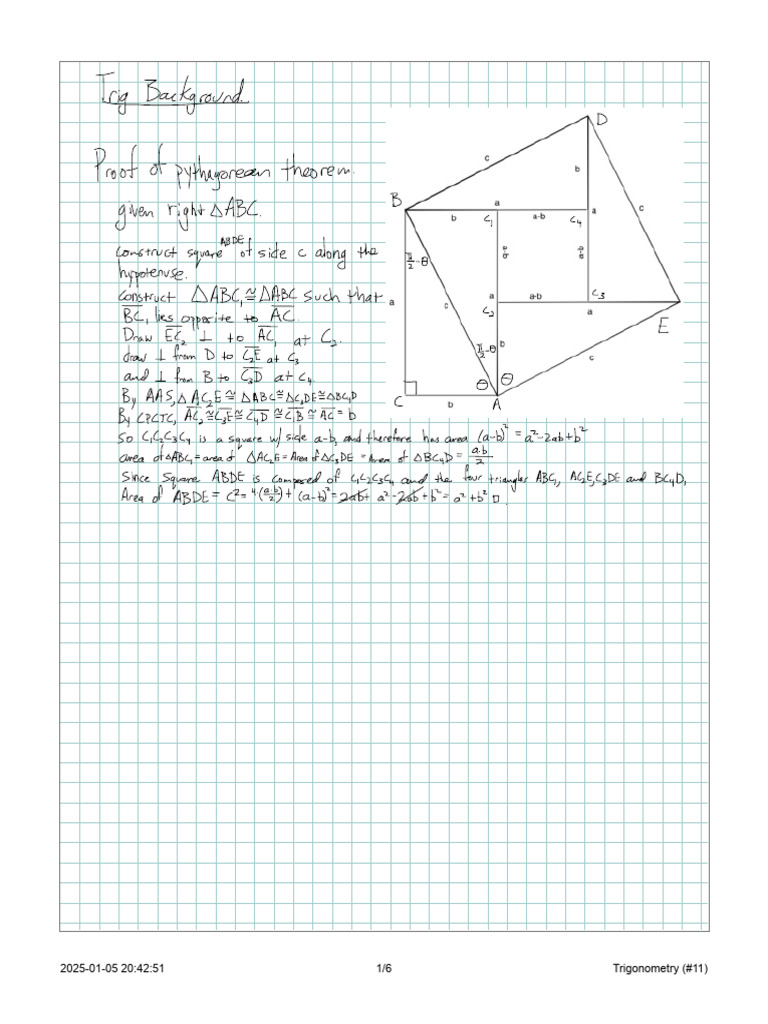 Trig Background
Proof of pythagorean theorem.
given right △ABC.
construct square ABDE of side c along the
hypotenuse.
Construct △ABC₁≅△ABC such that
BC₁ lies opposite to AC.
Draw EC₂ ⊥ to AC₁ at C₂.
draw ⊥ from D to C₂E at C₃
and ⊥ from B to C₃D at C₄
By AAS, △AC₂E≅△ABC≅△C₃DE≅△BC₄D
By CPCTC, AC₂≅C₃E≅C₄D≅C₁B≅AC=b
So C₁C₂C₃C₄ is a square w/ side a-b, and therefore has area (a-b)²=a²-2ab+b²
area of △ABC₁=area of △AC₂E=Area of △C₃DE=Area of △BC₄D=a·b/2
Since Square ABDE is composed of C₁C₂C₃C₄ and the four triangles ABC₁, AC₂E, C₃DE and BC₄D,
Area of ABDE=c²=4(a·b/2)+(a-b)²=2ab+a²-2ab+b²=a²+b² □.
D
c
b
B
a
b
C₁
a-b
C₄
a
c
π/2-θ
a-b
a-b
a
c
a
a-b
C₃
C₂
a
E
π/2-θ
b
c
θ
θ
C
b
A
2025-01-05 20:42:51
1/6
Trigonometry (#11)